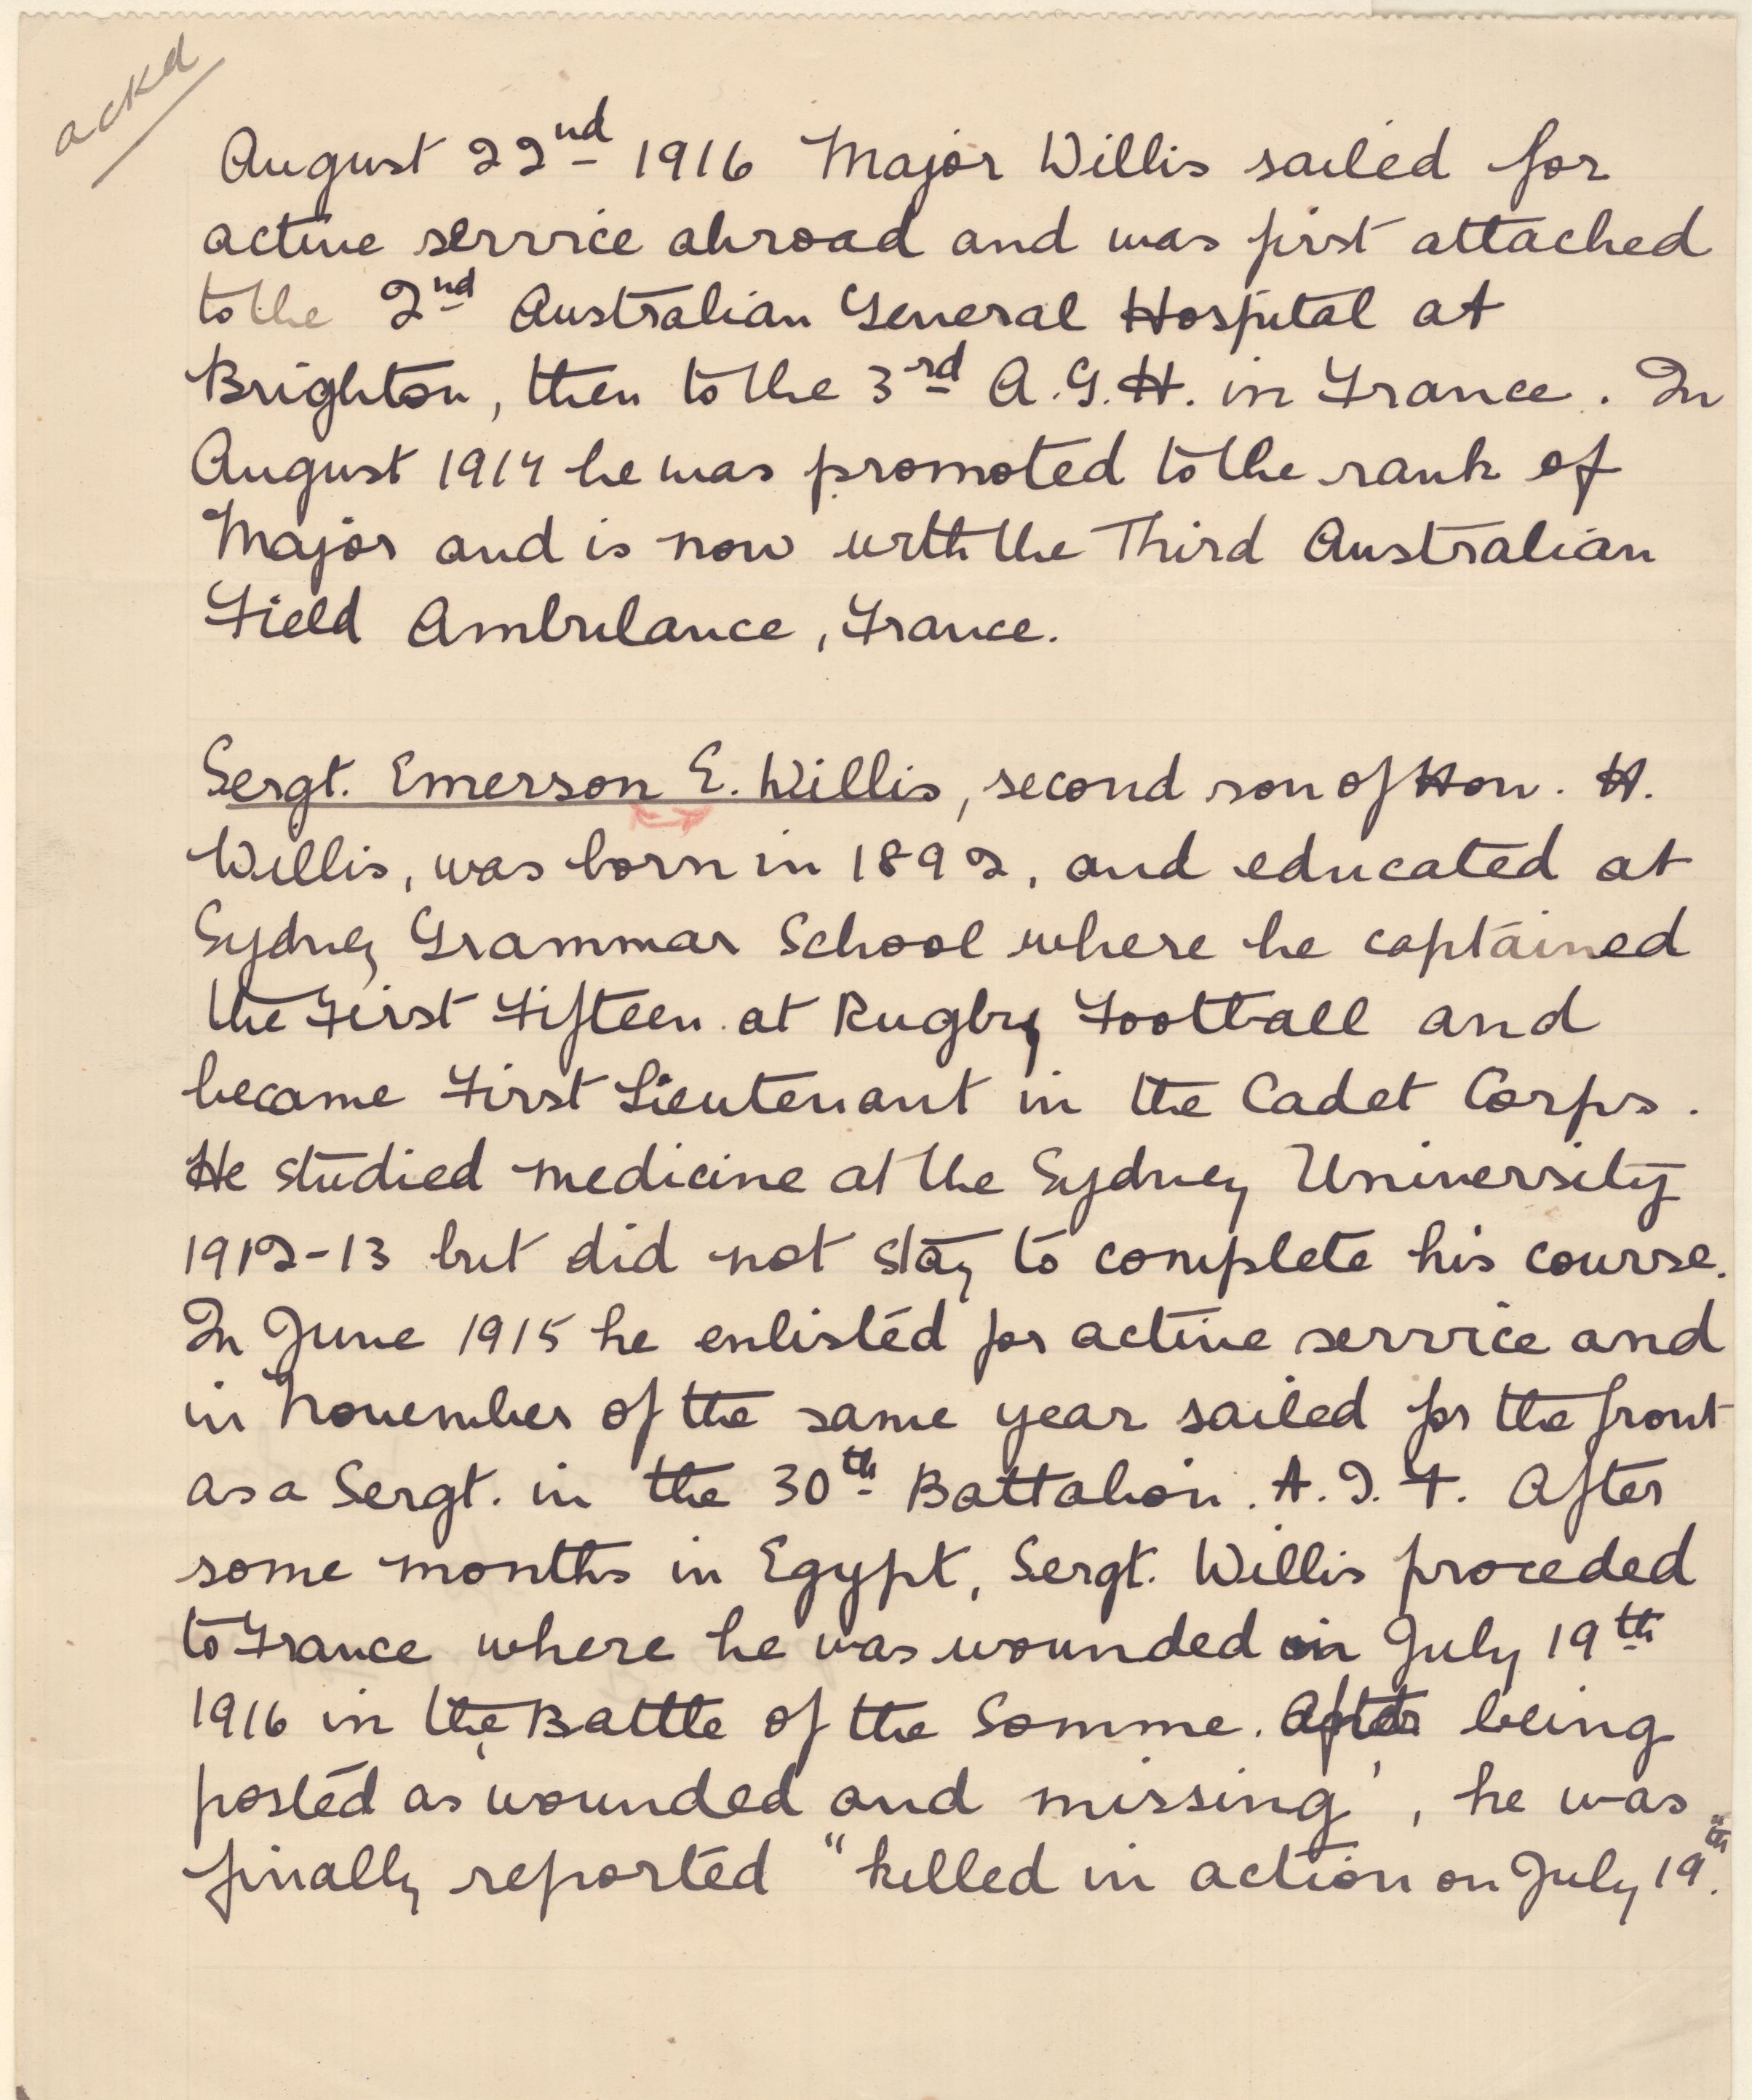 ackd
August 22nd 1916 Major Willis sailed for
active service abroad and was first attached
to the 2nd Australian General Hospital at
Brighton, then to the 3rd A.G.H. in France. In
August 1917 he was promoted to the rank of
Major and is now with the Third Australian
Field Ambulance, France.
Sergt. Emerson E. Willis, second son of Hon. H.
Willis, was born in 1892, and educated at
Sydney Grammar School where he captained
the First Fifteen at Rugby Football and
became First Lieutenant in the Cadet Corps.
He studied medicine at the Sydney University
1912-13 but did not stay to complete his course.
In June 1915 he enlisted for active service and
in November of the same year sailed for the front
as a Sergt. in the 30th Battalion. A.I.F. After
some months in Egypt, Sergt. Willis proceded
to France where he was wounded on July 19th
1916 in the Battle of the Somme. After being
posted as 'wounded and missing', he was
finally reported "killed in action on July 19th."